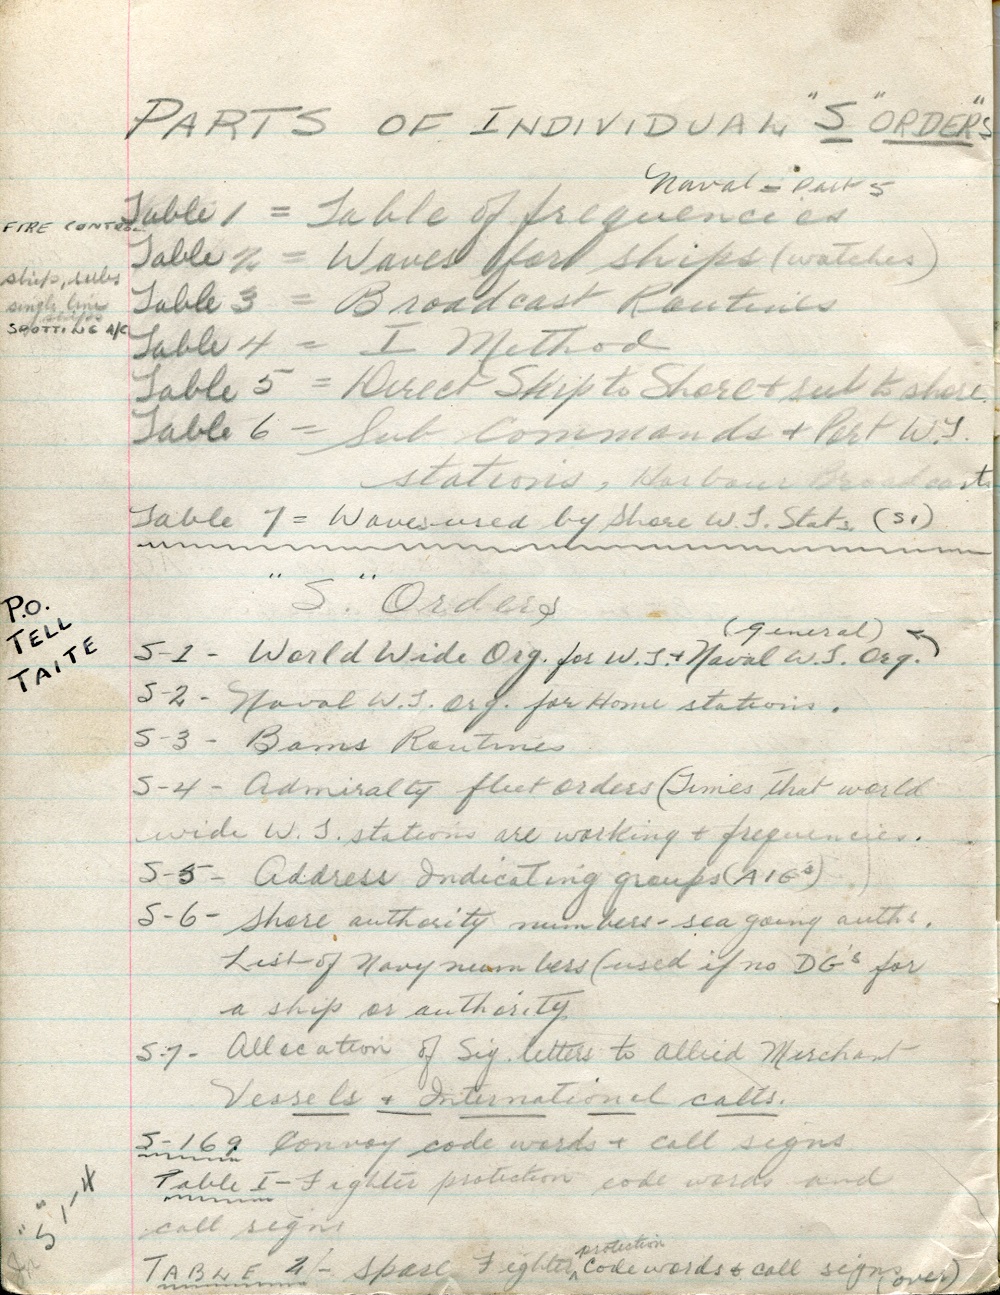 PARTS OF INDIVIDUAL "S" ORDERS"
Naval = Part 5
Table 1 = Table of frequencies
FIRE CONTROL
Table 2 = Waves for ships (watches)
ship, subs
single line
ships
SPOTTING A/C
Table 3 = Broadcast Routines
Table 4 = I Method
Table 5 = Direct Ship to Shore + sub to shore
Table 6 = Sub Commands + Port W.T.
stations, Harbour Broadcasts
Table 7 = Waves used by Shore W.T. Stats. (S1)
"S." Orders
P.O.
TELL
TAITE
(general)
S-1 - World Wide Org. for W.T. + Naval W.T. Org.
S-2 - Naval W.T. Org. for Home stations.
S-3 - Bams Routines
S-4 - Admiralty fleet orders (Times that world
wide W.T. stations are working + frequencies.
S-5 - Address Indicating groups (AIG's)
S-6 - Shore authority numbers - sea going auths.
List of Navy numbers (used if no DG's for
a ship or authority
S-7 - Allocation of Sig. letters to Allied Merchant
Vessels + International calls.
S-169 Convoy code words + call signs
Table I - Fighter protection code words and
call signs
"S1-H
protection
TABLE 2 - Spare Fighter ^ Code words & call signs
(over)